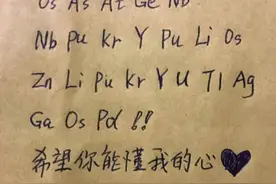 Os As At Ge Nb
Nb Pu Kr Y Pu Li Os
Zn Li Pu Kr Y U Tl Ag
Ga Os Pd !!
希望你能懂我的心